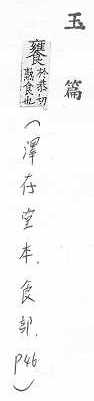 玉篇
饔於恭切熟食也
(澤存堂本.食部.P46)